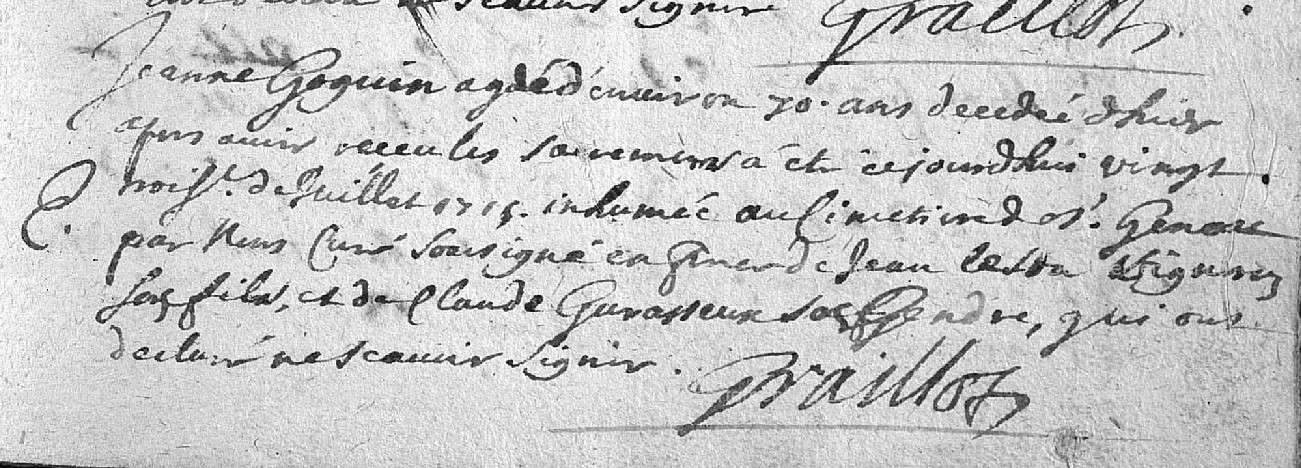 ne scavoir signer Graillot
Jeanne Goguin agéé d'environ 70. ans decedeé d'hier
apres avoir receu les sacremens a été cejourdhui vingt
troisie. de Juillet 1715. inhumée au Cimetiere de St. Genou
par Nous Curé soussigné en presence de Jean vigneron
son fils, et de Claude Garasseux son Gendre, qui ont
declaré ne scavoir signer. Graillot